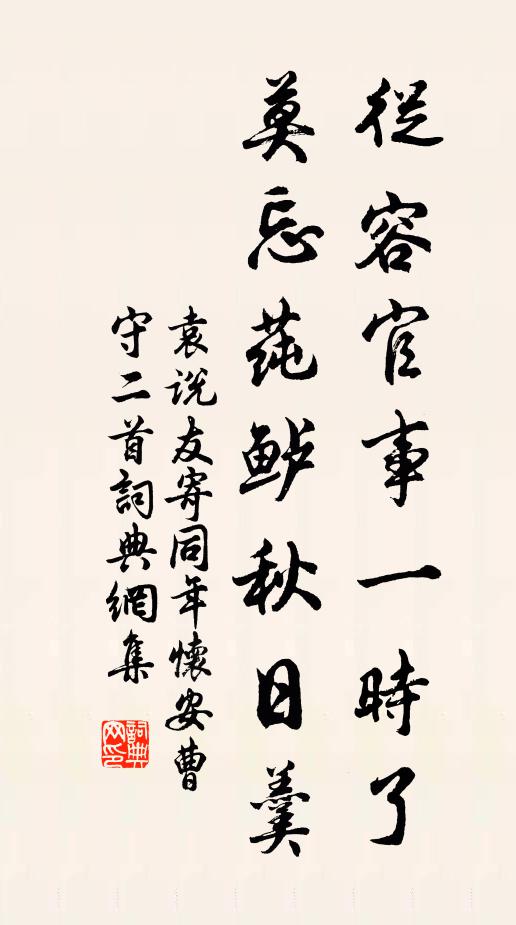 從容官事一時了
莫忘莼鲈秋日羹
袁説友寄同年懷安曹
守二首詞典網集
詞典
网印